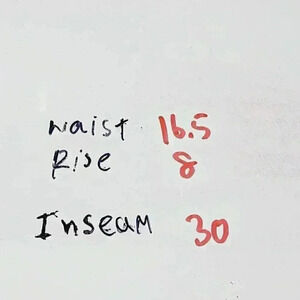 waist 16.5
Rise 8
Inseam 30